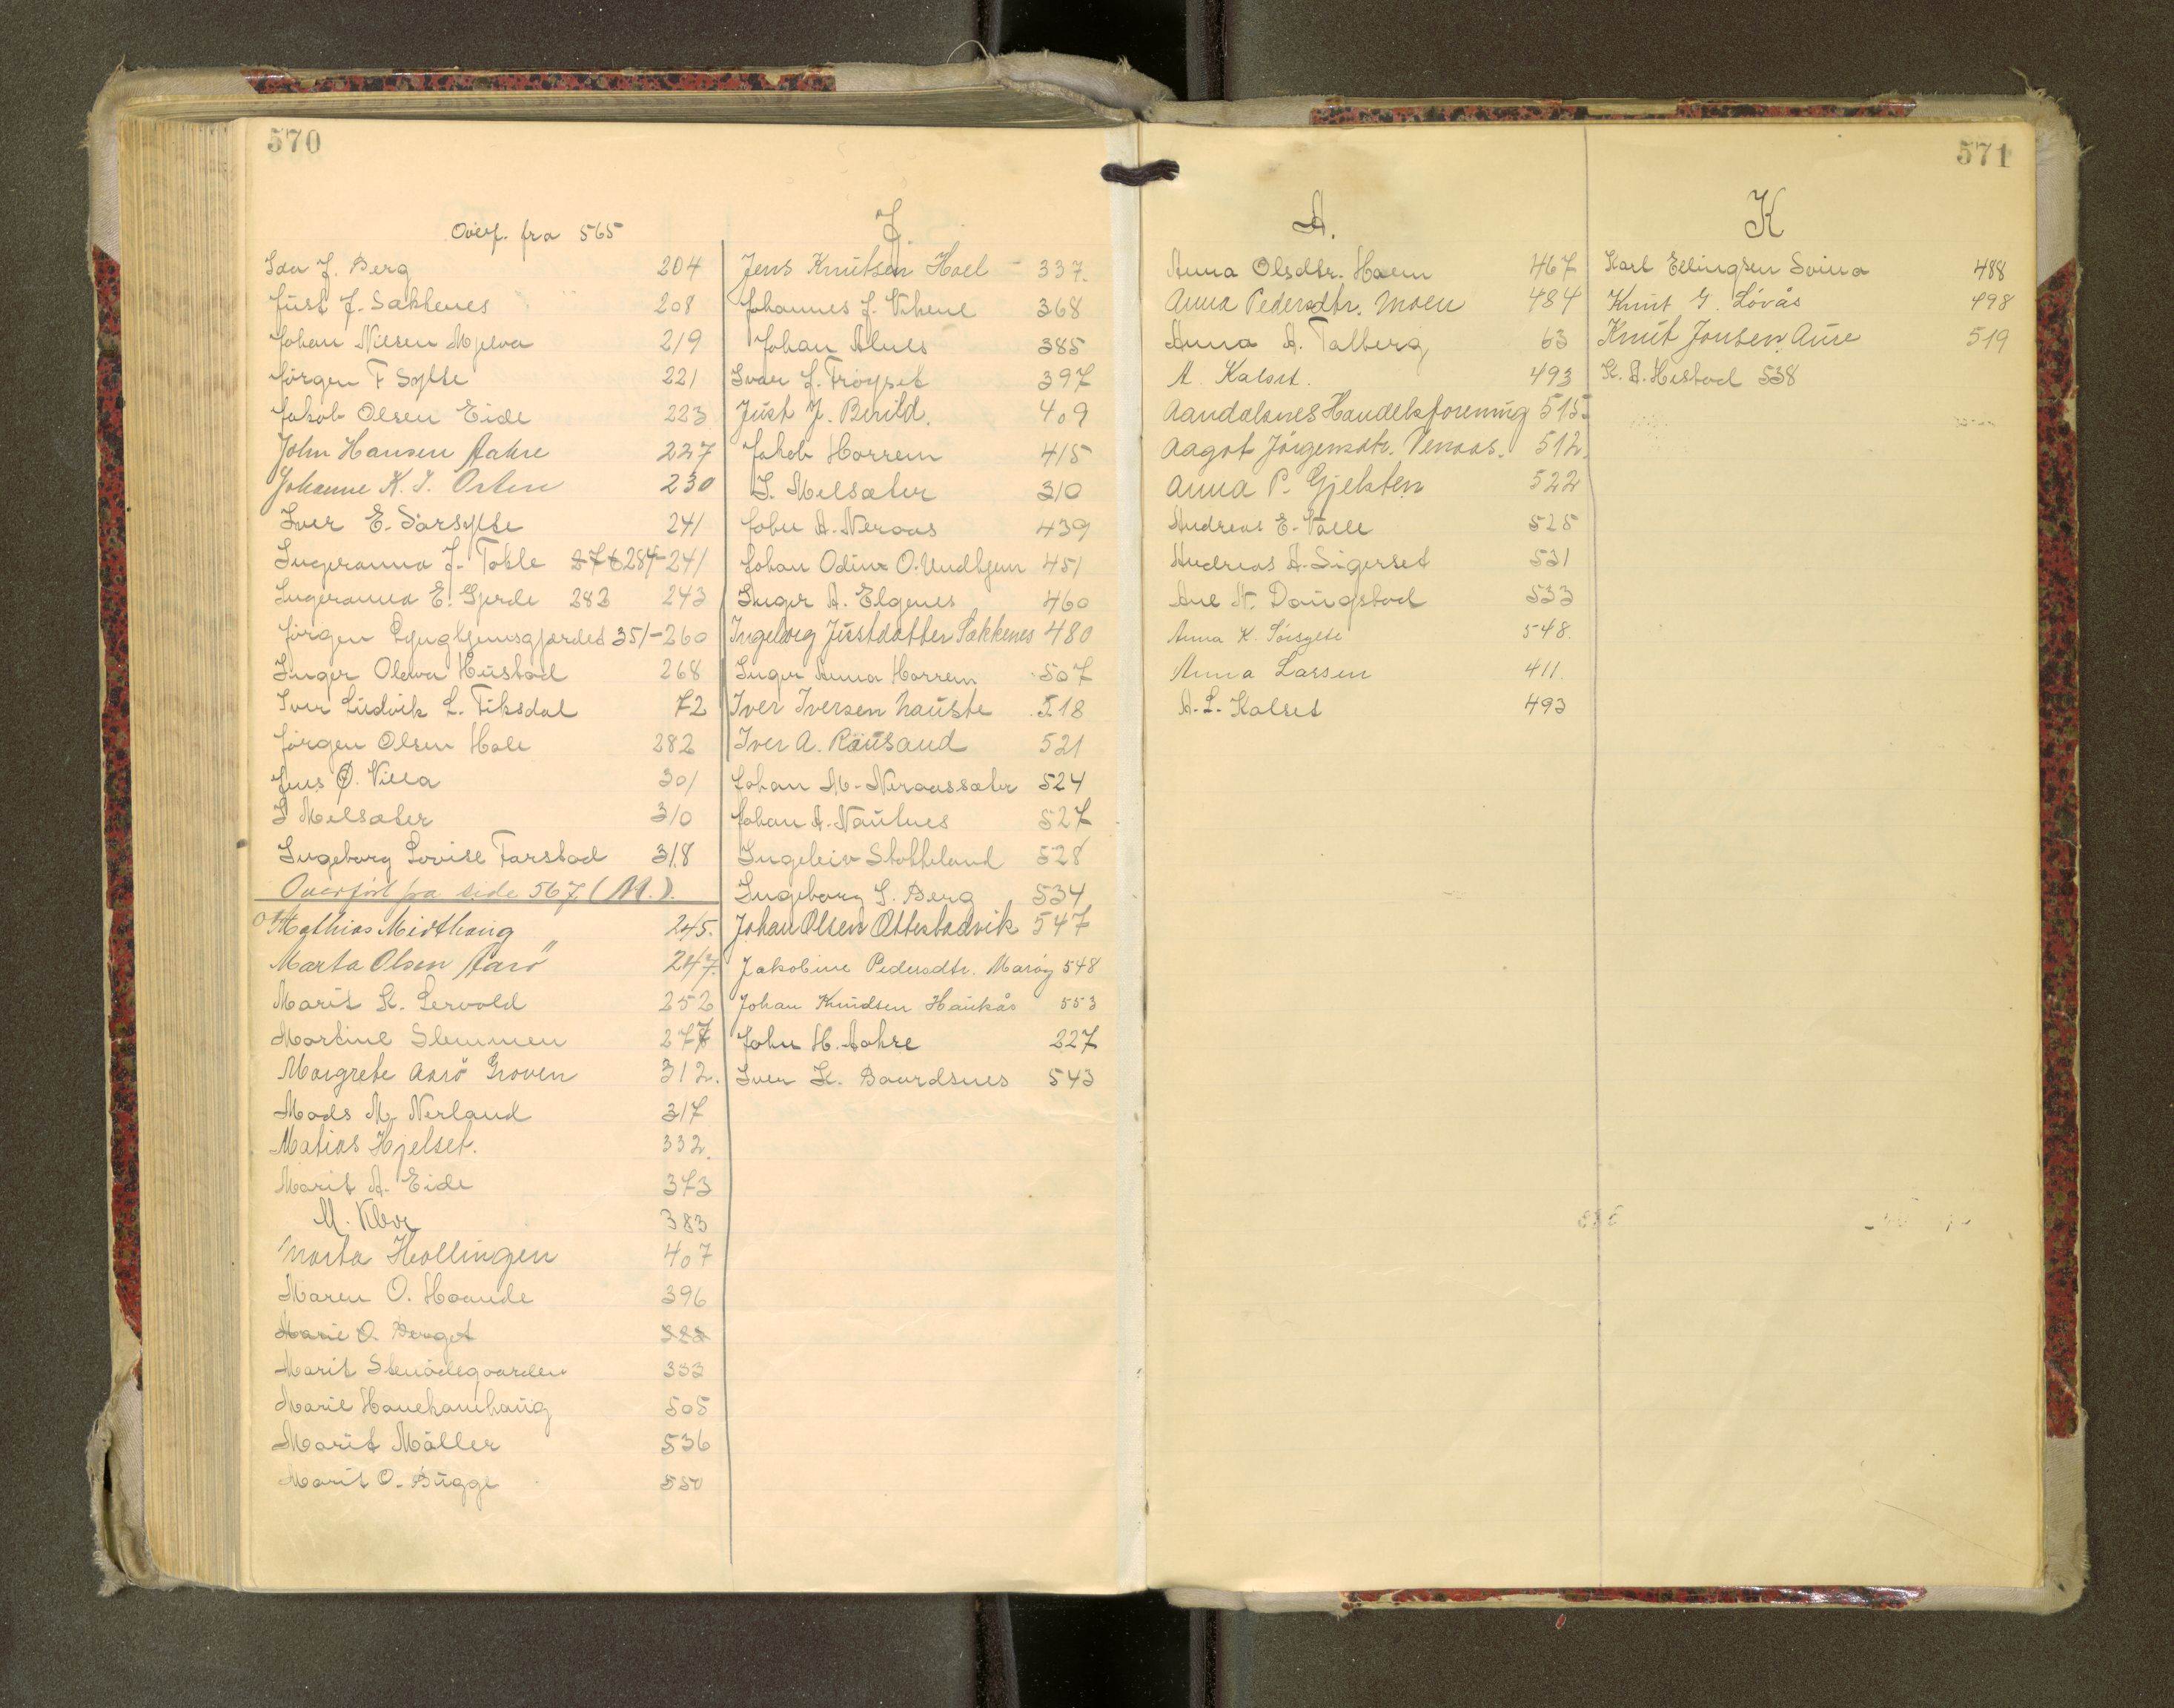 570
Overf. fra 565
Ida J. Berg 204
Just J. Sækkenes 208
Johan Nilsen Mjelva 219
Jörgen T Sylte 221
Jakob Olsen Eide 223
John Hansen Aahre 227
Johanne K. I. Osten 230
Iver E. Sörsylte 241
Ingeranna J. Tokle 284-241
Ingeranna E. Gjerde 283 243
Jörgen Lyngheimsgjerdet 351-260
Inger Oleva Hustad 268
Iver Ludvik L. Fiksdal 72
Jörgen Olsen Hole 282
Jens Ø. Villa 301
I Melsæter 310
Ingeborg Lovise Farstad 318
Overfört fra side 567. (M.).
Mathias Midthaug 245.
Marta Olsen Aarö 247.
Marit K. Lervold 252
Martine Stemmen 277
Margrete Aarö Groven 312.
Mads M. Nerland 317
Matias Hjelset. 332.
Marit A. Eide 373
M. Klev 383
Marta Hollingen 407
Maren O. Haande 396
Marie O. Berget 388
Marit Stenödegaarden 353
Marie Hanekamhaug 505
Marit Möller 536
Marit O. Bugge 550
J.
Jens Knutsen Hoel - 337.
Johannes J. Vikene 368
Johan Alnes 385
Ivar J. Tröyset 397
Just J. Berild. 409
Jakob Horrem 415
I. Melsæter 310
John A. Neraas 439
Johan Odin O. Undhjem 451
Inger A. Elgenes 460
Ingeborg Justdatter Sækkenes 480
Inger Anna Horrem 507
Iver Iversen Nauste 518
Iver A. Rausand 521
Johan M. Neraassæter 524
Johan A. Nautnes 527
Ingeleiv Stokkeland 528
Ingeborg S. Berg 534
Johan Olsen Ottestadvik 547
Jakobine Pedersdtr. Maröy 548
Johan Knudsen Haukås 553
John H. Aahre 227
Iver K. Baardsnes 543
571
A.
Anna Olsdtr. Haem 467
Anna Pedersdtr. Moen 484
Anna A. Talberg 63
A. Kalset. 493
Aandalsnes Handelsforening 515.
Aagot Jörgensdtr. Venaas. 512.
Anna P. Gjelsten 522
Andreas E. Valle 525
Andreas A. Sigerset 531
Ane N. Daugstad 533
Anna K. Sörsylte 548.
Anna Larsen 411.
A. L. Kalset 493
K
Karl Ellingsen Svina 488
Knut G. Lövås 498
Knut Jonsen Aure 519
K. A. Hestad 538